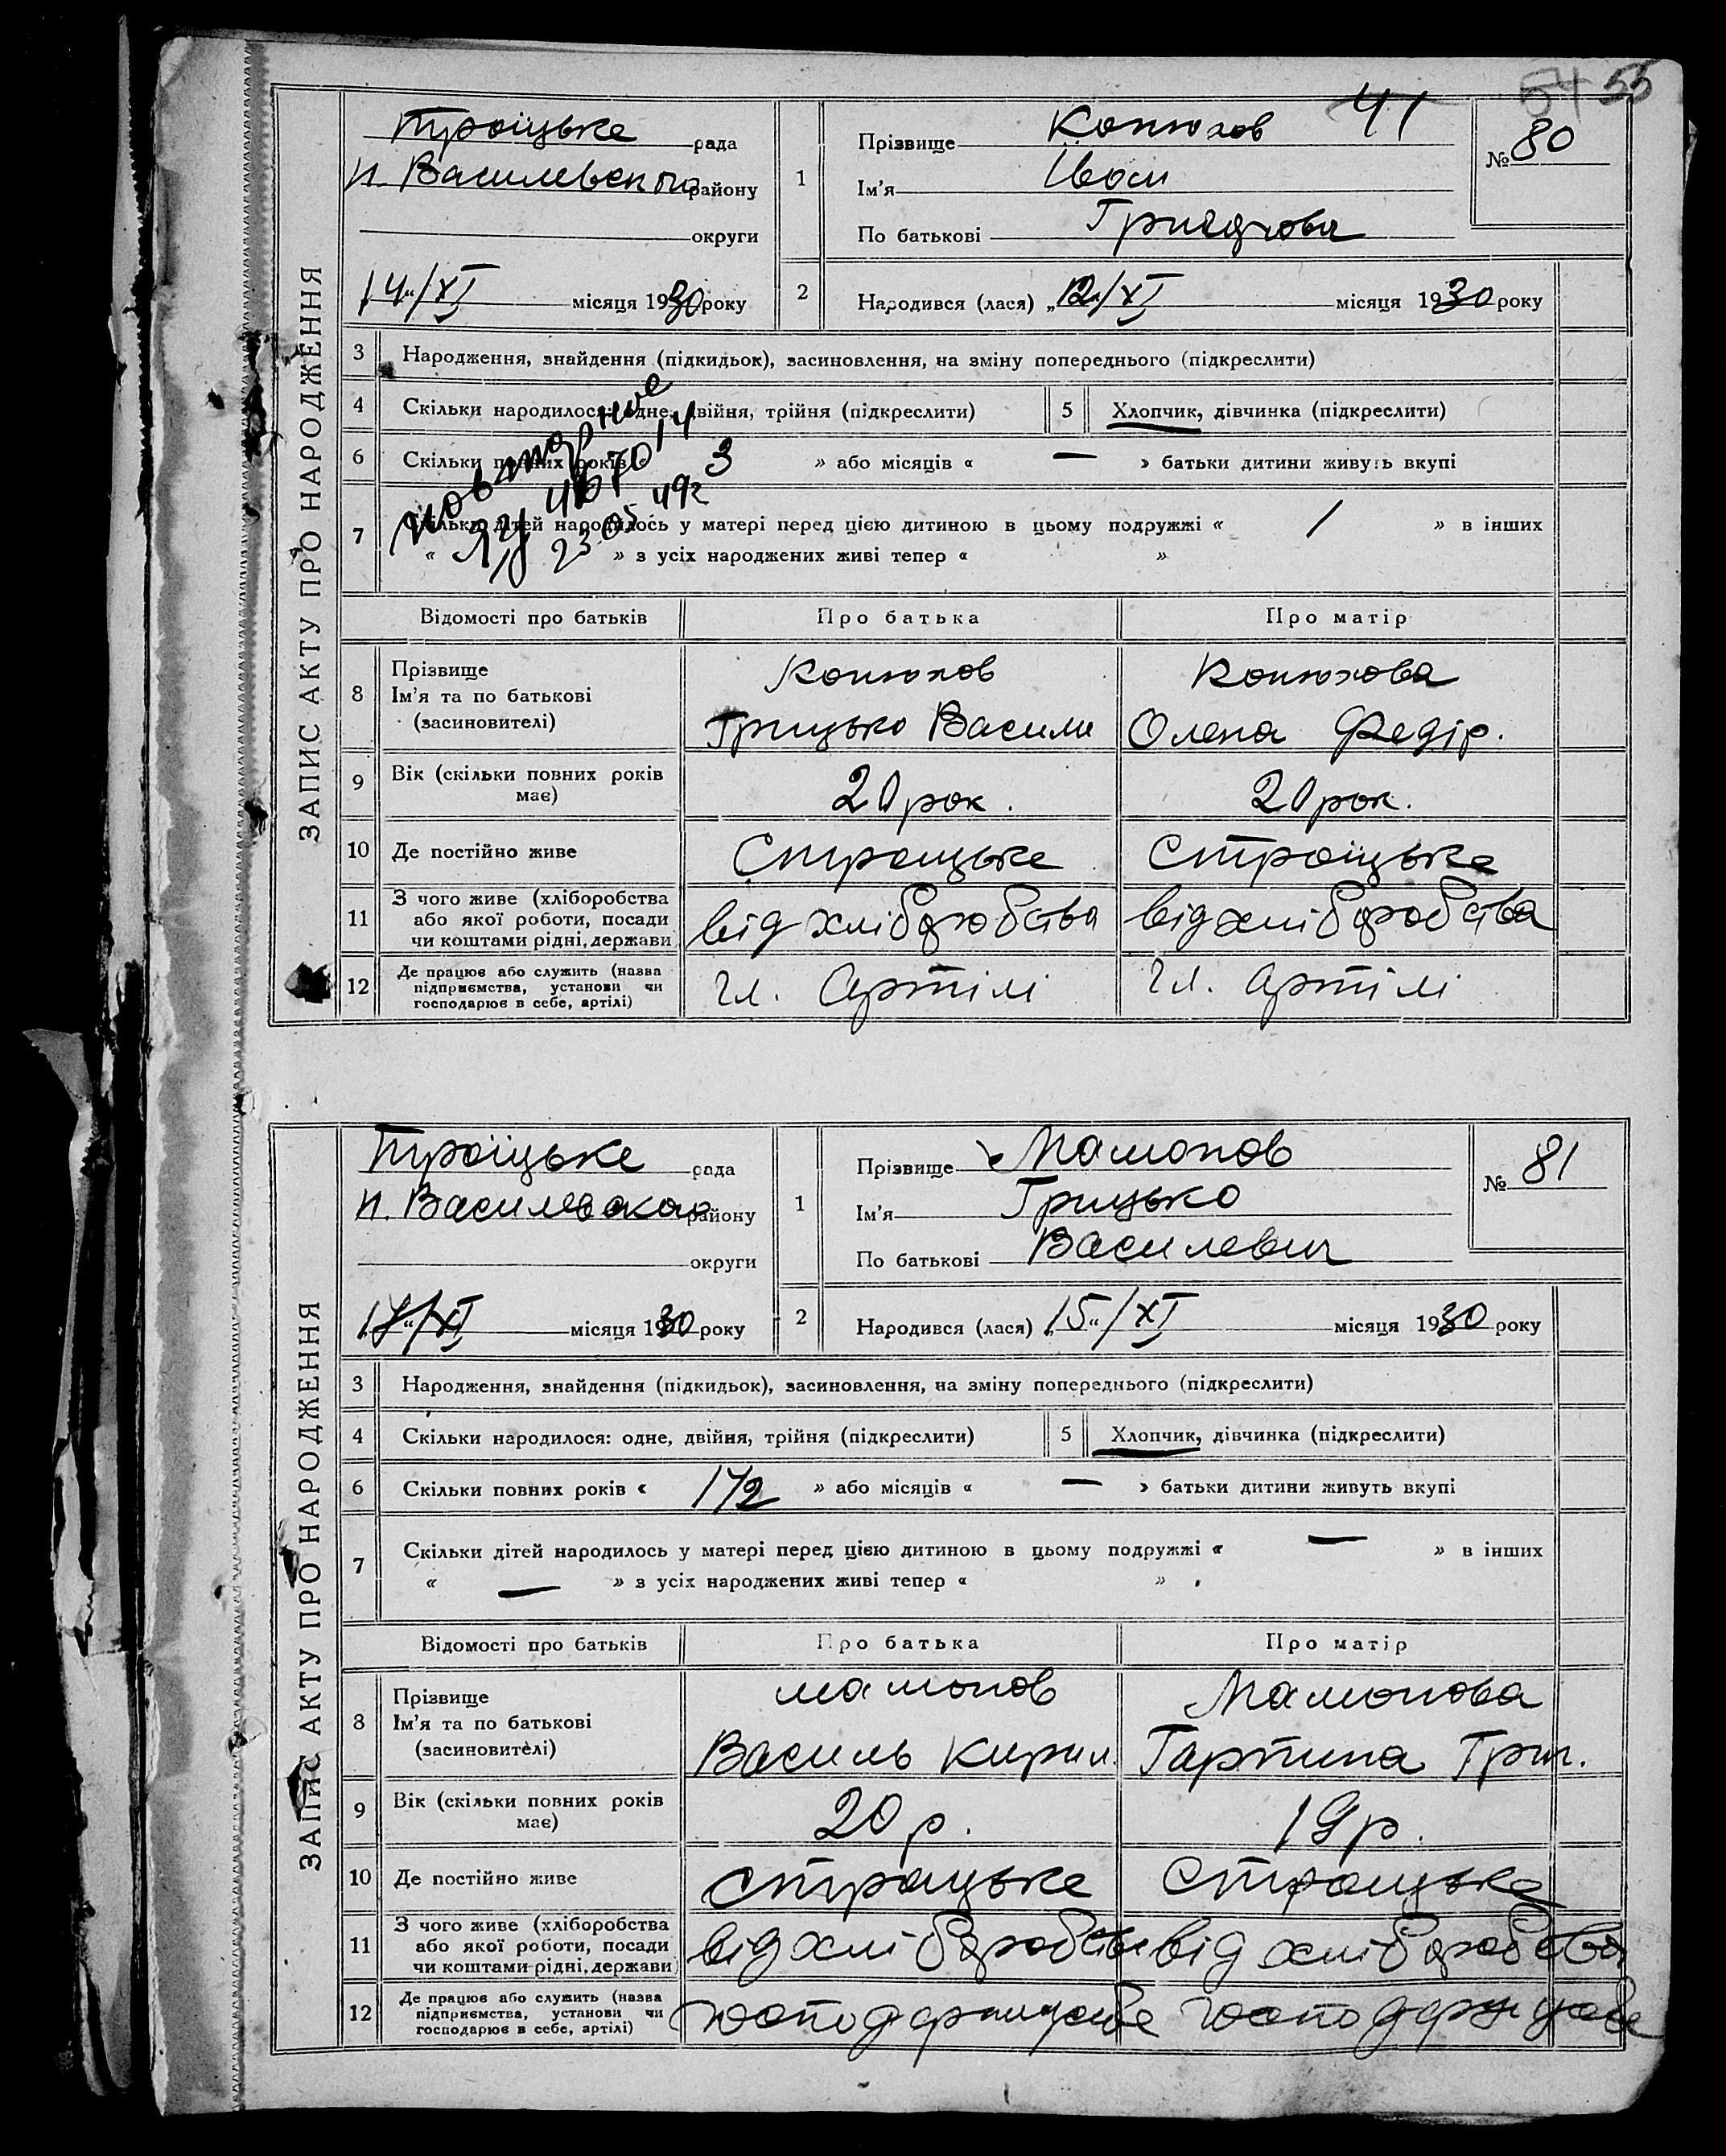 54 55
41
ЗАПИС АКТУ ПРО НАРОДЖЕННЯ
Троїцьке рада
н. Василевськ району
округи
14/XI місяця 1930 року
1
Прізвище Конюхов
Ім'я Іван
По батькові
№ 80
2 Народився (лася) „12/XI місяця 1930 року
3 Народження, знайдення (підкидьок), засиновлення, на зміну попереднього (підкреслити)
4 Скільки народилося: одне, двійня, трійня (підкреслити) 5 Хлопчик, дівчинка (підкреслити)
6 Скільки повних років « » або місяців « — » батьки дитини живуть вкупі
7 Скільки дітей народилось у матері перед цією дитиною в цьому подружжі « / » в інших
« » з усіх народжених живі тепер « »
повторное
467014
23 05 49г 3
Відомості про батьків Про батька Про матір
8 Прізвище
Ім'я та по батькові
(засновителі)
Конюхов
Грицько Васили
Конюхова
Олена Федір.
9 Вік (скільки повних років
має)
20 рок. 20 рок.
10 Де постійно живе Строцьке Строїцьке
11 З чого живе (хліборобства
або якої роботи, посади
чи коштами рідні, держави)
від хліборобства від хліборобства
12 Де працює або служить (назва
підприємства, установи чи
господарює в себе, артілі)
чл. Артілі чл. артілі
ЗАПИС АКТУ ПРО НАРОДЖЕННЯ
Троїцьке рада
н. Василевскаго району
округи
17/XI місяця 1930 року
1
Прізвище Мамонов
Ім'я Грицько
По батькові Василевич
№ 81
2 Народився (лася) „15„/XI місяця 1930 року
3 Народження, знайдення (підкидьок), засиновлення, на зміну попереднього (підкреслити)
4 Скільки народилося: одне, двійня, трійня (підкреслити) 5 Хлопчик, дівчинка (підкреслити)
6 Скільки повних років « 1 1/2 » або місяців « — » батьки дитини живуть вкупі
7 Скільки дітей народилось у матері перед цією дитиною в цьому подружжі « — » в інших
« — » з усіх народжених живі тепер « »
Відомості про батьків Про батька Про матір
8 Прізвище
Ім'я та по батькові
(засиновителі)
мамонов
Василь Кирил.
Мамонова
Гартина Григ.
9 Вік (скільки повних років
має)
20 р. 19 р.
10 Де постійно живе Строцьке Строцьке
11 З чого живе (хліборобства
або якої роботи, посади
чи коштами рідні, держави)
від хліборобства від хліборобства
12 Де працює або служить (назва
підприємства, установи чи
господарює в себе, артілі)